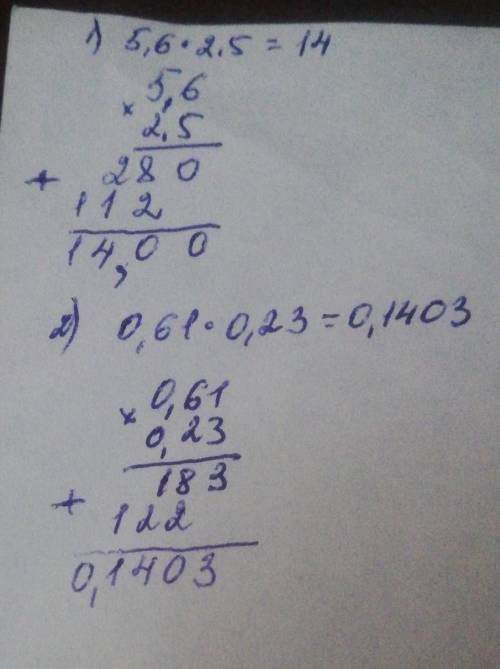 1) 5,6 · 2,5 = 14
× 5,6
2,5
+ 280
112
14,00
2) 0,61 · 0,23 = 0,1403
× 0,61
0,23
+ 183
122
0,1403